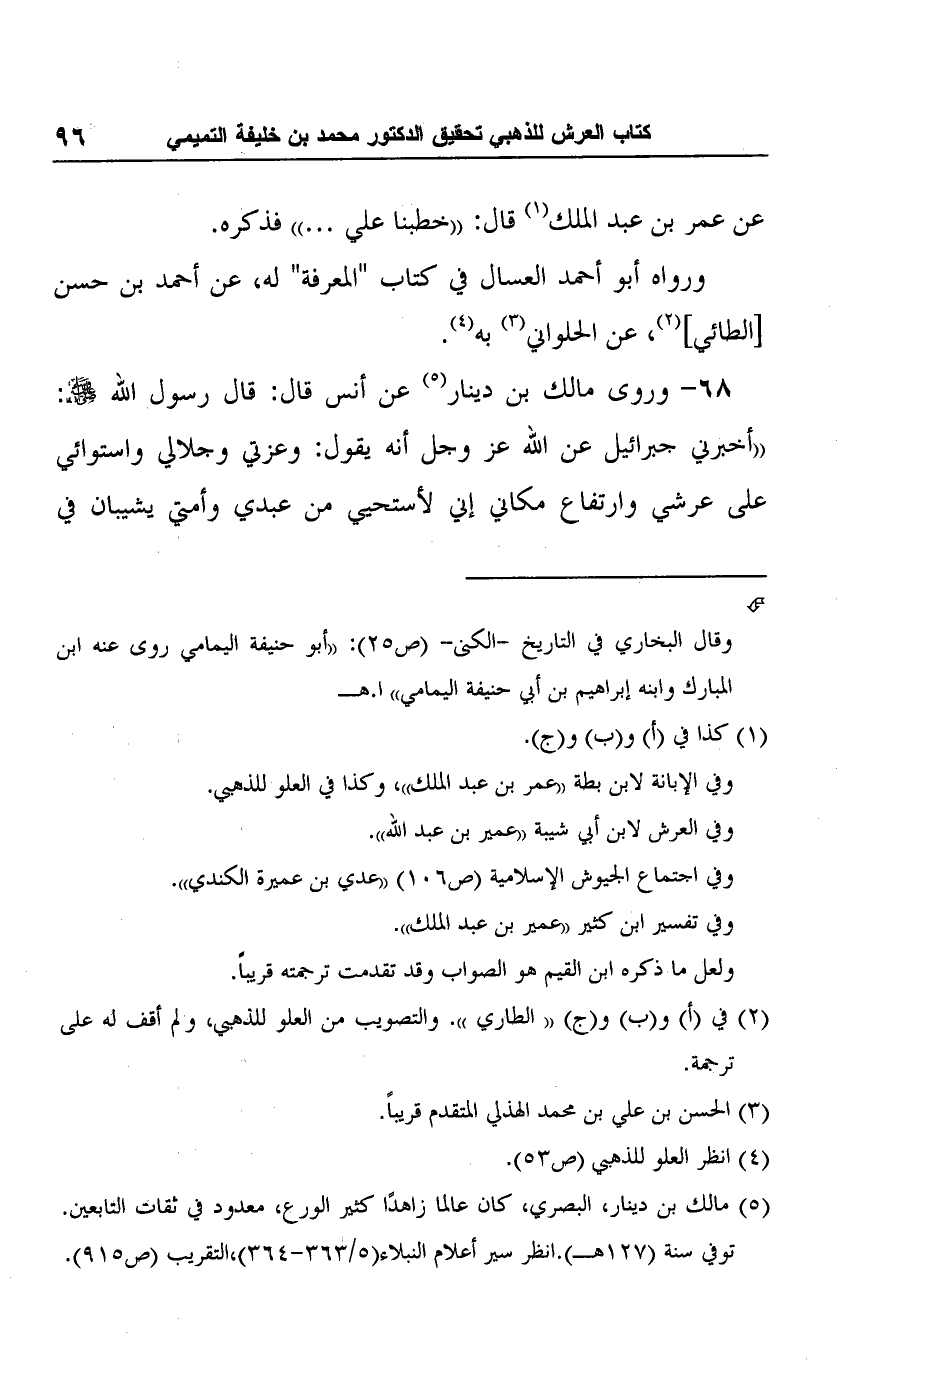 كتاب العرش للذهبي تحقيق الدكتور محمد بن خليفة التميمي ٩٦
عن عمر بن عبد الملك(١) قال: ((خطبنا علي ...)) فذكره.
ورواه أبو أحمد العسال في كتاب "المعرفة" له، عن أحمد بن حسن
[الطائي](٢)، عن الحلواني(٣) به(٤).
٦٨- وروى مالك بن دينار(٥) عن أنس قال: قال رسول الله ﷺ:
((أخبرني جبرائيل عن الله عز وجل أنه يقول: وعزتي وجلالي واستوائي
على عرشي وارتفاع مكاني إني لأستحيي من عبدي وأمتي يشيبان في
وقال البخاري في التاريخ -الكنى- (ص٢٥): ((أبو حنيفة اليمامي روى عنه ابن
المبارك وابنه إبراهيم بن أبي حنيفة اليمامي)) ا.هـــ
(١) كذا في (أ) و(ب) و(ج).
وفي الإبانة لابن بطة ((عمر بن عبد الملك))، وكذا في العلو للذهبي.
وفي العرش لابن أبي شيبة ((عمير بن عبد الله)).
وفي اجتماع الجيوش الإسلامية (ص١٠٦) ((عدي بن عميرة الكندي)).
وفي تفسير ابن كثير ((عمير بن عبد الملك)).
ولعل ما ذكره ابن القيم هو الصواب وقد تقدمت ترجمته قريباً.
(٢) في (أ) و(ب) و(ج) (( الطاري )). والتصويب من العلو للذهبي، ولم أقف له على
ترجمة.
(٣) الحسن بن علي بن محمد الهذلي المتقدم قريباً.
(٤) انظر العلو للذهبي (ص٥٣).
(٥) مالك بن دينار، البصري، كان عالما زاهدًا كثير الورع، معدود في ثقات التابعين.
توفي سنة (١٢٧هـــ).انظر سير أعلام النبلاء(٥/٣٦٣-٣٦٤)،التقريب (ص٩١٥).